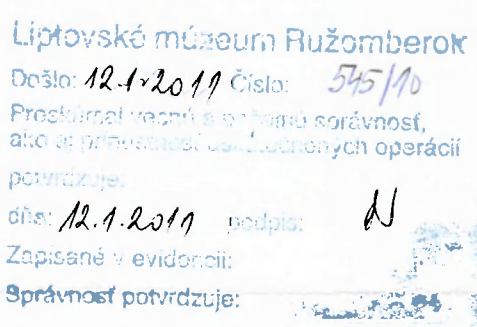 Liptovské múzeum Ružomberok
Došlo: 12.1.2011 Číslo: 545/10
Preskúmal vecnú a správnosť,
ako aj prípustnosť uskutočnených operácií
potvrdzuje:
dňa: 12.1.2011 podpis:
Zapísané v evidencii:
Správnosť potvrdzuje: